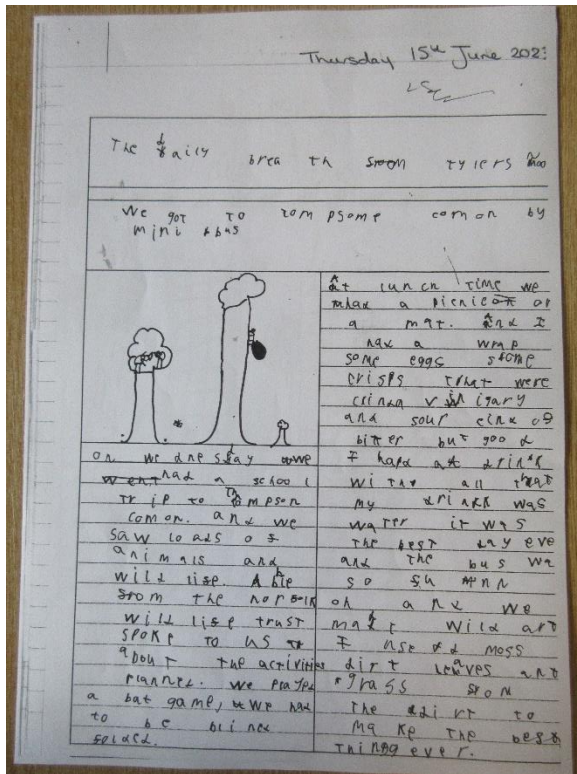 Thursday 15th June 202
The daily brea th som tylers
We got to tompsome comon by
mini bus
on we dnesday we
went had a school
tr ip to Thompson
comon. and we
saw loads of
animals and
wild life. A ble
from the norfolk
wild life trust
spoke to us
about the activities
planned. We played
a bat game, We had
to be bline
folded.
At lunch time we
had a picnic on
a mat. And I
had a wrap
some eggs some
crisps that were
crinkd vinigary
and sour cind of
bitter but good
I had a drink
with all that
my drink was
water it was
the best day eve
and the bus wa
so fu nn
oh and we
mad wild art
I used moss
dirt leaves and
grass from
the dirt to
make the best
thing ever.